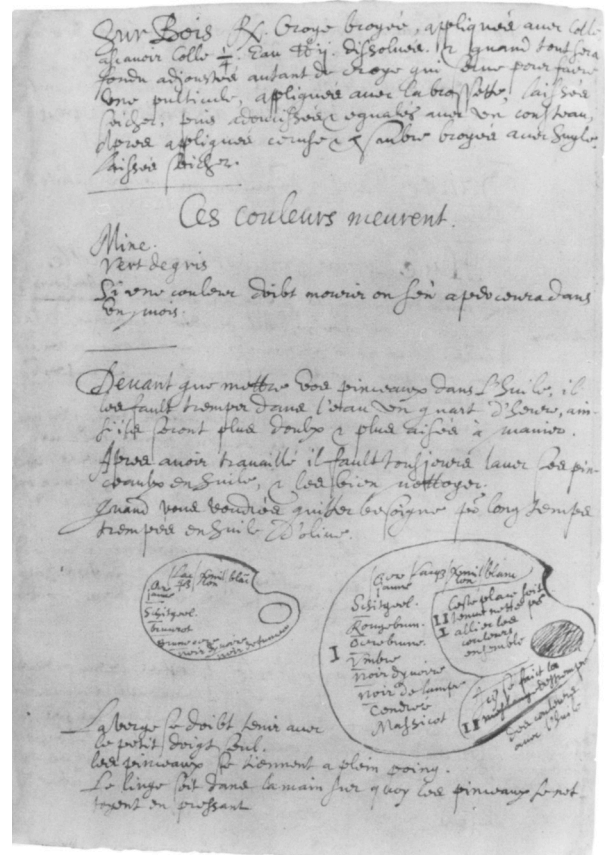 Sur Bois ℞. Croye broyée, appliquée avec Colle
ascavoir Colle Eau ℔ ij. dissoluée. Et quand tout sera
fondu adjoustés autant de croye qui pour faire
une pulticule, appliquée avec la brossette, laissés
seicher, puis adoucissés & egualés avec un cousteau,
Apres appliqués ceruse & d'ombre broyée avec huyle
laissés seicher.
Ces couleurs meurent.
Mine.
Vert de gris
Si une couleur doibt mourir on s'en apercevra dans
un mois.
Devant que mettre vos pinceaux dans l'huile, il
les fault tremper dans l'eau un quart d'heure, ain-
si ils seront plus doulx & plus aisés à manier.
Apres avoir travaillé il fault tousjours laver ses pin-
ceaux en huile, & les bien nettoyer.
Quand vous voudrés quitter besoigne po long temps
trempés en huile d'olive.
Ocre
jaune
Lac
Vermil
lon
blanc
Schitgeel.
brunrot
noir d'yvoire
noir de fumee
Ocre
jaune
Lacq
Vermil
lon
blanc
Schitgeel.
Rougebrun.
Ocrebrune.
I Umbre
Noir d'yvoire
Noir de lampe
Cendrée
Massicot
Ceste place soit
II tenue nette po
I allier les
couleurs
ensemble
Icy se fait le
II meslange
des couleurs
avec l'huile
La verge se doibt tenir avec
le petit doigt seul.
Les pinceaux se tiennent a plein poing.
Le linge soit dans la main sur quoy les pinceaux se net-
toyent en pressant